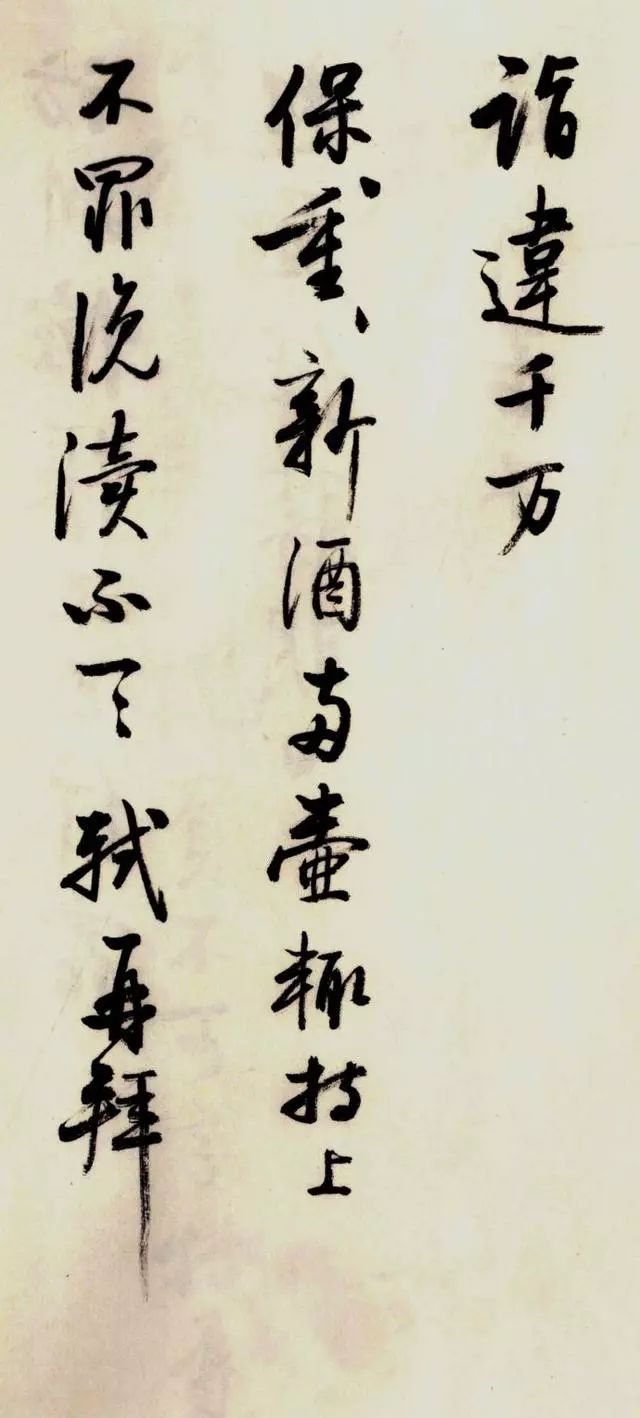 詣違千万
保、重、新酒兩壺輙持上
不罪浼瀆不一〻軾再拜